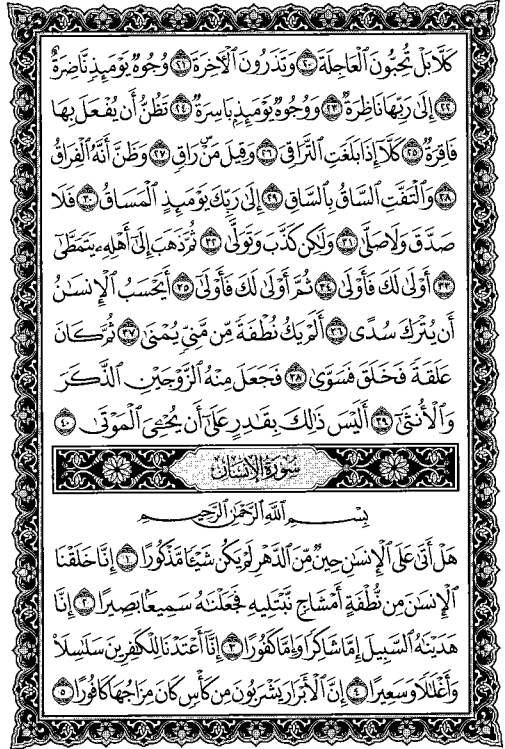 كَلَّا بَلْ تُحِبُّونَ ٱلْعَاجِلَةَ ٢٠ وَتَذَرُونَ ٱلْآخِرَةَ ٢١ وُجُوهٌ يَوْمَئِذٍ نَّاضِرَةٌ
٢٢ إِلَىٰ رَبِّهَا نَاظِرَةٌ ٢٣ وَوُجُوهٌ يَوْمَئِذٍ بَاسِرَةٌ ٢٤ تَظُنُّ أَن يُفْعَلَ بِهَا
فَاقِرَةٌ ٢٥ كَلَّا إِذَا بَلَغَتِ ٱلتَّرَاقِيَ ٢٦ وَقِيلَ مَنْ رَاقٍ ٢٧ وَظَنَّ أَنَّهُ ٱلْفِرَاقُ
٢٨ وَٱلْتَفَّتِ ٱلسَّاقُ بِٱلسَّاقِ ٢٩ إِلَىٰ رَبِّكَ يَوْمَئِذٍ ٱلْمَسَاقُ ٣٠ فَلَا
صَدَّقَ وَلَا صَلَّىٰ ٣١ وَلَٰكِن كَذَّبَ وَتَوَلَّىٰ ٣٢ ثُمَّ ذَهَبَ إِلَىٰٓ أَهْلِهِۦ يَتَمَطَّىٰٓ
٣٣ أَوْلَىٰ لَكَ فَأَوْلَىٰ ٣٤ ثُمَّ أَوْلَىٰ لَكَ فَأَوْلَىٰٓ ٣٥ أَيَحْسَبُ ٱلْإِنسَٰنُ
أَن يُتْرَكَ سُدًى ٣٦ أَلَمْ يَكُ نُطْفَةً مِّن مَّنِىٍّ يُمْنَىٰ ٣٧ ثُمَّ كَانَ
عَلَقَةً فَخَلَقَ فَسَوَّىٰ ٣٨ فَجَعَلَ مِنْهُ ٱلزَّوْجَيْنِ ٱلذَّكَرَ
وَٱلْأُنثَىٰٓ ٣٩ أَلَيْسَ ذَٰلِكَ بِقَٰدِرٍ عَلَىٰٓ أَن يُحْۦِىَ ٱلْمَوْتَىٰ ٤٠
سُورَةُ الإِنسَان
بِسْمِ ٱللَّهِ ٱلرَّحْمَٰنِ ٱلرَّحِيمِ
هَلْ أَتَىٰ عَلَى ٱلْإِنسَٰنِ حِينٌ مِّنَ ٱلدَّهْرِ لَمْ يَكُن شَيْـًٔا مَّذْكُورًا ١ إِنَّا خَلَقْنَا
ٱلْإِنسَٰنَ مِن نُّطْفَةٍ أَمْشَاجٍ نَّبْتَلِيهِ فَجَعَلْنَٰهُ سَمِيعًۢا بَصِيرًا ٢ إِنَّا
هَدَيْنَٰهُ ٱلسَّبِيلَ إِمَّا شَاكِرًا وَإِمَّا كَفُورًا ٣ إِنَّآ أَعْتَدْنَا لِلْكَٰفِرِينَ سَلَٰسِلَا۟
وَأَغْلَٰلًا وَسَعِيرًا ٤ إِنَّ ٱلْأَبْرَارَ يَشْرَبُونَ مِن كَأْسٍ كَانَ مِزَاجُهَا كَافُورًا ٥